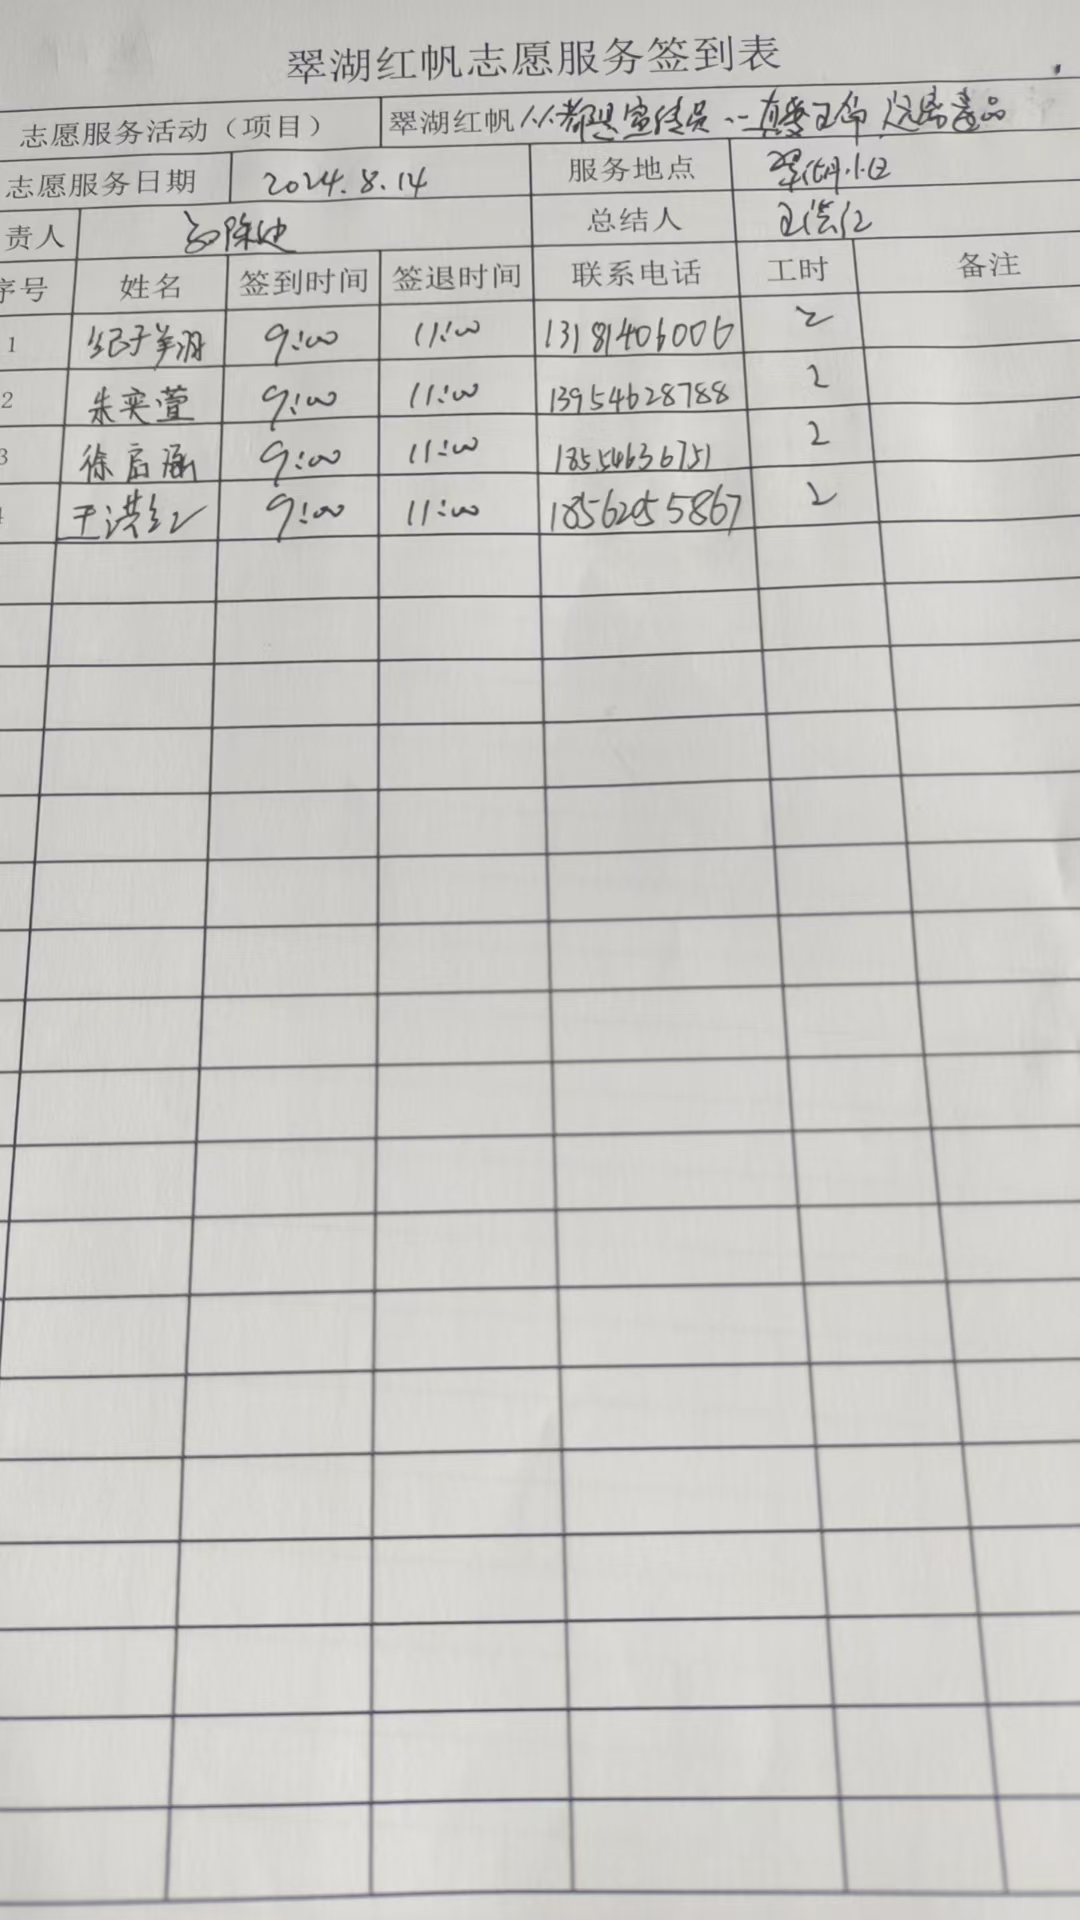 翠湖红帆志愿服务签到表
志愿服务活动（项目） 翠湖红帆人人都是宣传员 远离毒品
志愿服务日期 2024.8.14 服务地点 翠湖小区
责人 总结人 王洪红
序号 姓名 签到时间 签退时间 联系电话 工时 备注
1 纪于羊羽 9:00 11:00 13181406006 2
2 朱奕萱 9:00 11:00 13954628788 2
3 徐启涵 9:00 11:00 18554636751 2
王洪红 9:00 11:00 18562055867 2